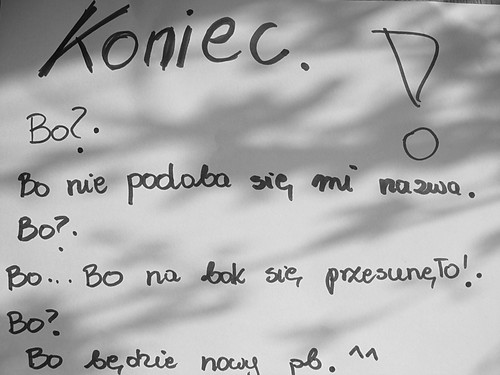 Koniec. !
Bo?.
Bo nie podoba się mi nazwa.
Bo?.
Bo... Bo na bok się przesunęło!.
Bo?
Bo będzie nowy pb. ^^